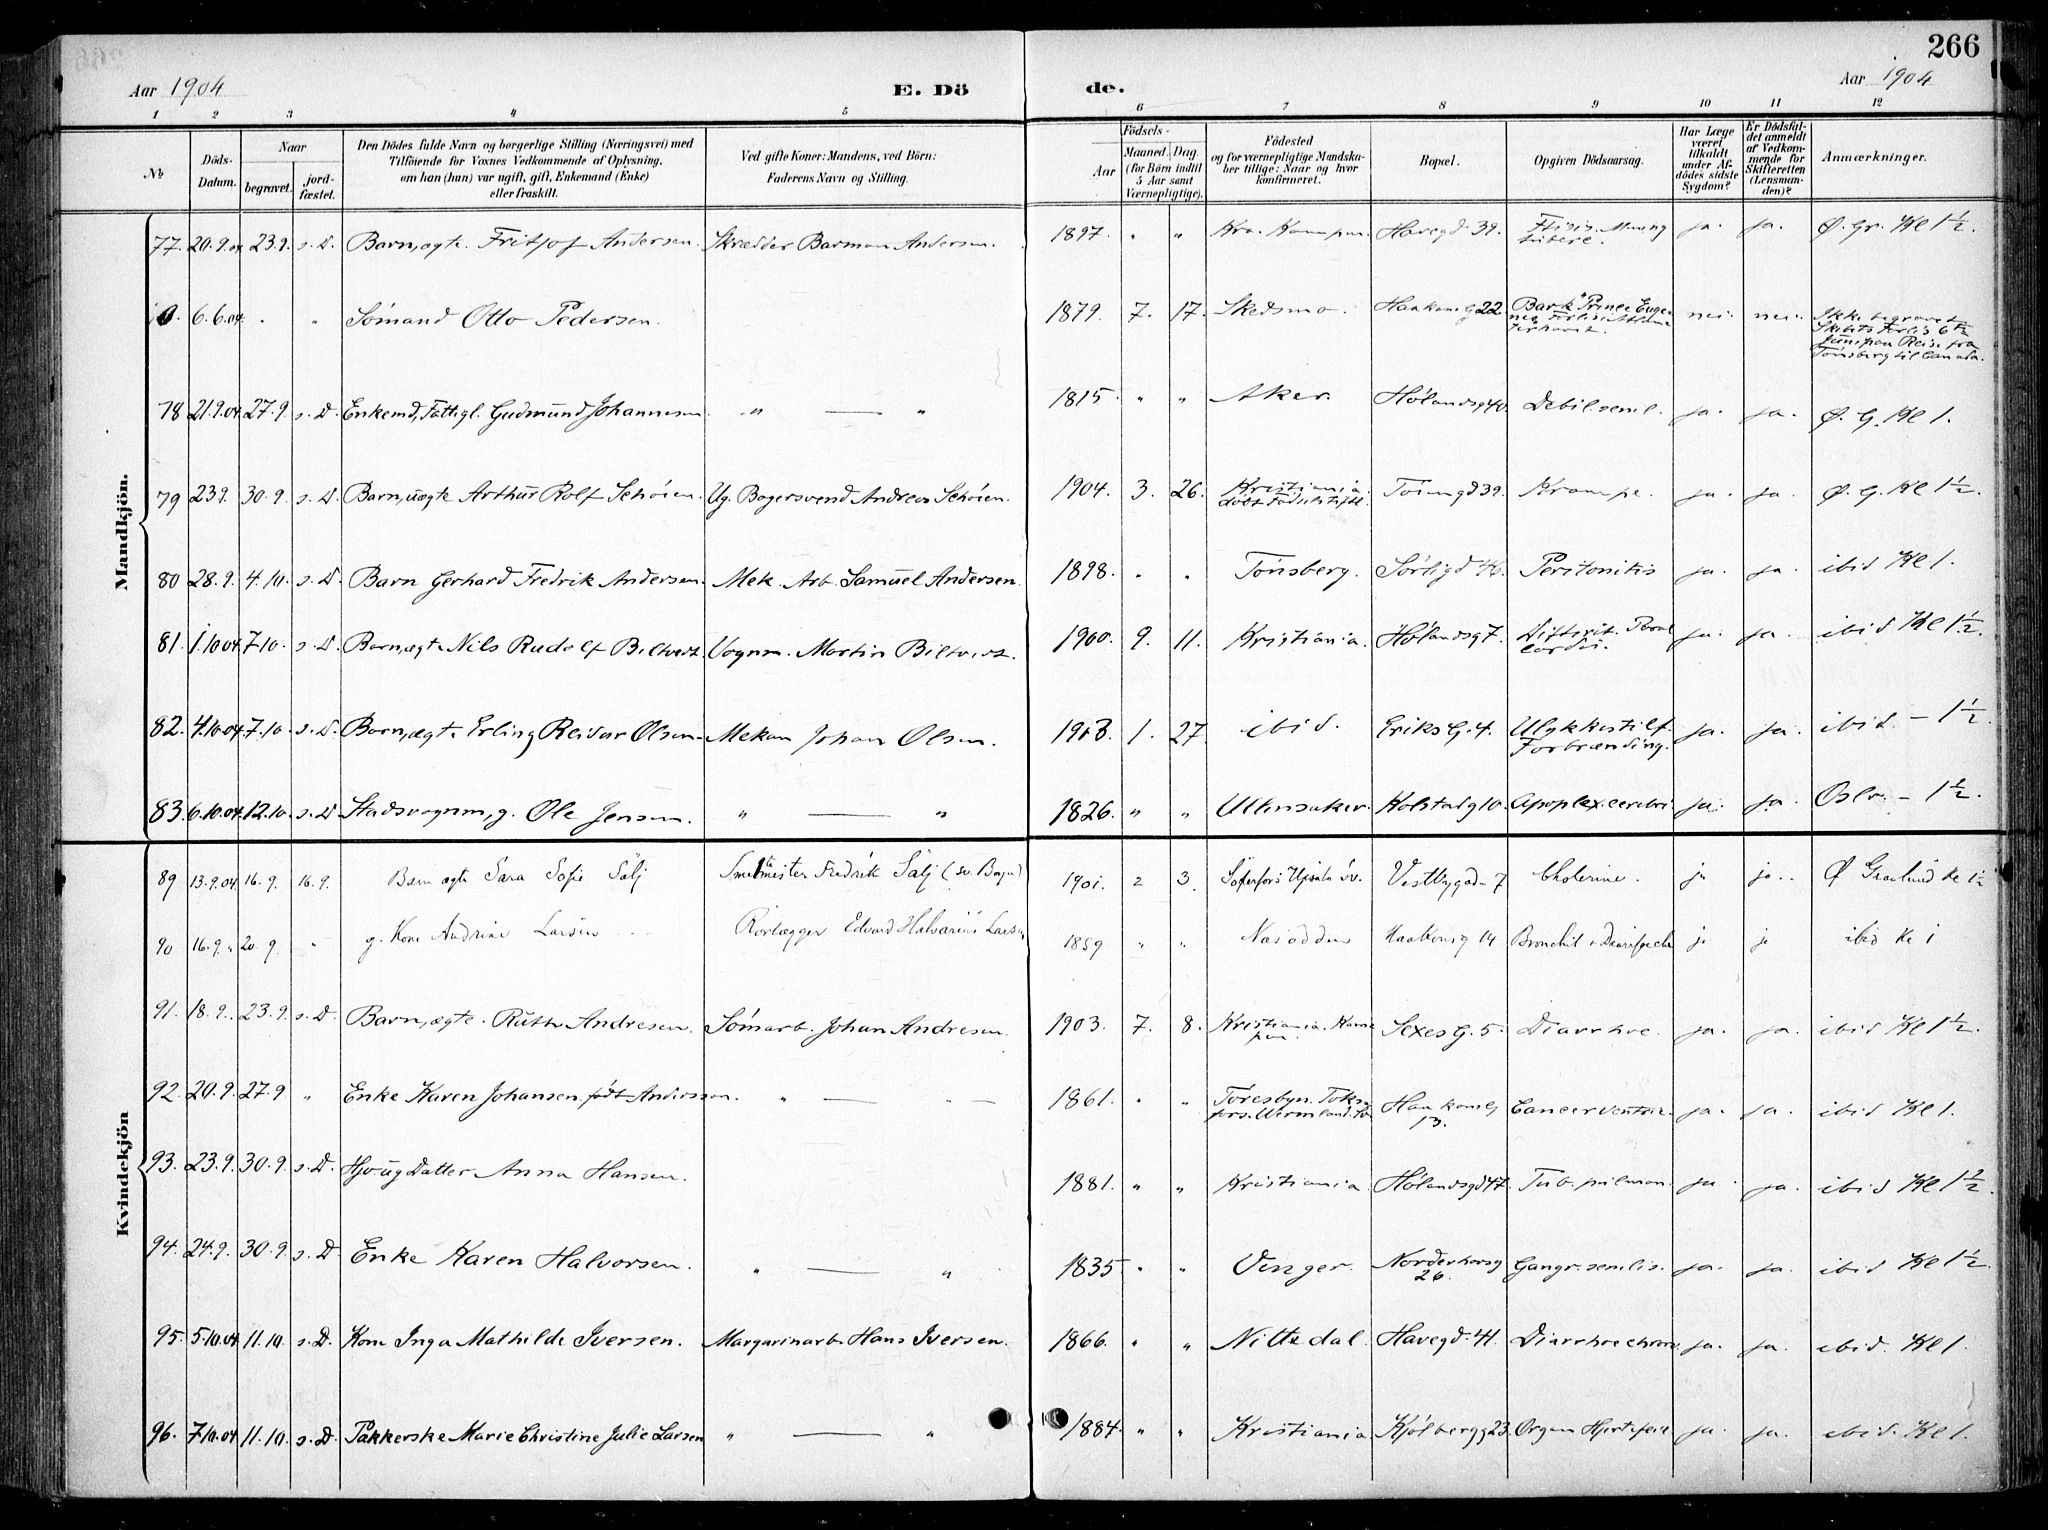 266
Aar 1904 E. Dö de. Aar 1904
1 2 3 4 5 6 7 8 9 10 11 12
№
Döds-Datum.
Naar
begravet.
jord-fæstet.
Den Dödes fulde Navn og borgerlige Stilling (Næringsvei) med
Tilföiende for Voxnes Vedkommende af Oplysning,
om han (hun) var ugift, gift, Enkemand (Enke)
eller fraskilt.
Ved gifte Koner: Mandens, ved Börn:
Faderens Navn og Stilling.
Födsels-
Aar
Maaned. Dag.
(for Börn indtil
5 Aar samt
Værnepligtige).
Födested
og for værnepligtige Mandska-
ber tillige: Naar og hvor
konfirmeret.
Bopæl.
Opgiven Dödsaarsag.
Har Læge
været
tilkaldt
under Af-
dödes sidste
Sygdom?
Er Dödsfal-
det anmeldt
af Vedkom-
mende for
Skifteretten
(Lensman-
den)?
Anmærkninger.
Mandkjön.
77. 20.9.04 23.9. s. D. Barn, ægte. Fritjof Andersen. Skrædder Barman Andersen. 1897. " " Kra. Kampen. Havegd. 39. Ftisis. Mening tubere. ja. ja. Ø. Gr. Kl 1½.
0. 6.6.04. " " Sömand Otto Pedersen. 1879. 7. 17. Skedsmo. Haakonsg 22. Bark "Prince Eugenes Forlis i Atlanterhavet. nei. nei. Ikke begravet
Skibets Forlis 6te
Juni paa Reise fra
Tönsberg til Canada.
78 21.9.04. 27.9. s. D. Enkemd, Fattigl. Gudmund Johannesen " — " 1815. " " Aker. Hölandsg 40. Debil senil. ja. ja. Ø. G. Kl 1.
79 23.9. 30.9. s. D. Barn, uægte Arthur Rolf Schöien. Ug. Bagersvend Andreas Schöien. 1904. 3. 26. Kristiania
Födselsstiftl. Töiengd 39. Krampe. ja. ja. Ø. G. Kl 1½.
80 28.9. 4.10. s. D. Barn Gerhard Fredrik Andersen. Mek. Arb. Samuel Andersen. 1898. " " Tönsberg. Sörligd 46. Peritonitis ja. ja. ibid Kl 1.
81. 1.10.04. 7.10. s. D. Barn, ægte Nils Rudolf Biltvedt. Vognm. Martin Biltvedt. 1900. 9. 11. Kristiania. Hölandsg 7. Difterit. Paral cordis. ja. ja. ibid Kl 1½.
82. 4.10.04. 7.10. s. D. Barn, ægte Erling Reidar Olsen. Mekan Johan Olsen. 1903. 1. 27. ibid. Eriks G. 4. Ulykkestilf. Forbrænding. ja. ja. ibid. – 1½.
83. 6.10.04. 12.10. s. D. Stadsvognm, g. Ole Jensen. " — " 1826. " " Ullensaker. Kolstadg 10. Apoplex. cerebri ja. ja. Oslo. – 1½.
Kvindekjön
89 13.9.04 16.9. 16.9. Barn ægte Sara Sofie Sälj Smeltmester Fredrik Sälj (sv. Borger) 1901. 2 3. Söderfors Upsala sv. Vestbygad. 7 Cholerine. ja ja.. Ø Gravlund Kl 1½
90 16.9. " 20.9. " g. Kone Andrine Larsen Rörlægger Edvard Halvarius Larsen 1859 " " Næsodden Haakonsg 14 Bronchit + ja ja ibid Kl 1
91. 18.9. 23.9. s. D. Barn, ægte. Ruth Andresen. Sömarb. Johan Andresen. 1903. 7. 8. Kristiania. Kampen. Sexes G. 5. Diarrhoe. ja. ja. ibid Kl 1½.
92. 20.9. 27.9 " Enke Karen Johansen født Andersson. " — " — 1861. " " Töresbyn. Wermland. Sv. Haakonsg
13. Cancer ventric. ja. ja. ibid Kl 1.
93. 23.9. 30.9. s. D. Hjvug Datter Anna Hansen. 1881. " " Kristiania. Hölandsgd 47. Tub. pulmon. ja. ja. ibid Kl 1½.
94. 24.9. 30.9. s. D. Enke Karen Halvorsen. " — " 1835 " " Vinger. Norderhovsg
26. Gangr. senilis. ja. ja. ibid Kl 1½.
95. 5.10.04 11.10. s. D. Kone Inga Mathilde Iversen. Margarinarb Hans Iversen. 1866. " " Nittedal. Havegd. 41. Diarrhoe chron. ja. ja. ibid. Kl 1.
96. 7.10.04 11.10. s. D. Pakkerske Marie Christine Julie Larsen " — " 1884. " " Kristiania Kjölbergg 23. Organ Hjertefeil ja. ja. ibid. Kl 1.